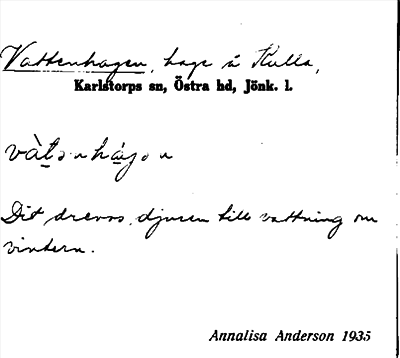 Vattenhagen, hage å Kulla,
Karlstorps sn, Östra hd, Jönk. l.
vàt̠ənhàgən
Dit drevos djuren till vattning om
vintern.
Annalisa Anderson 1935